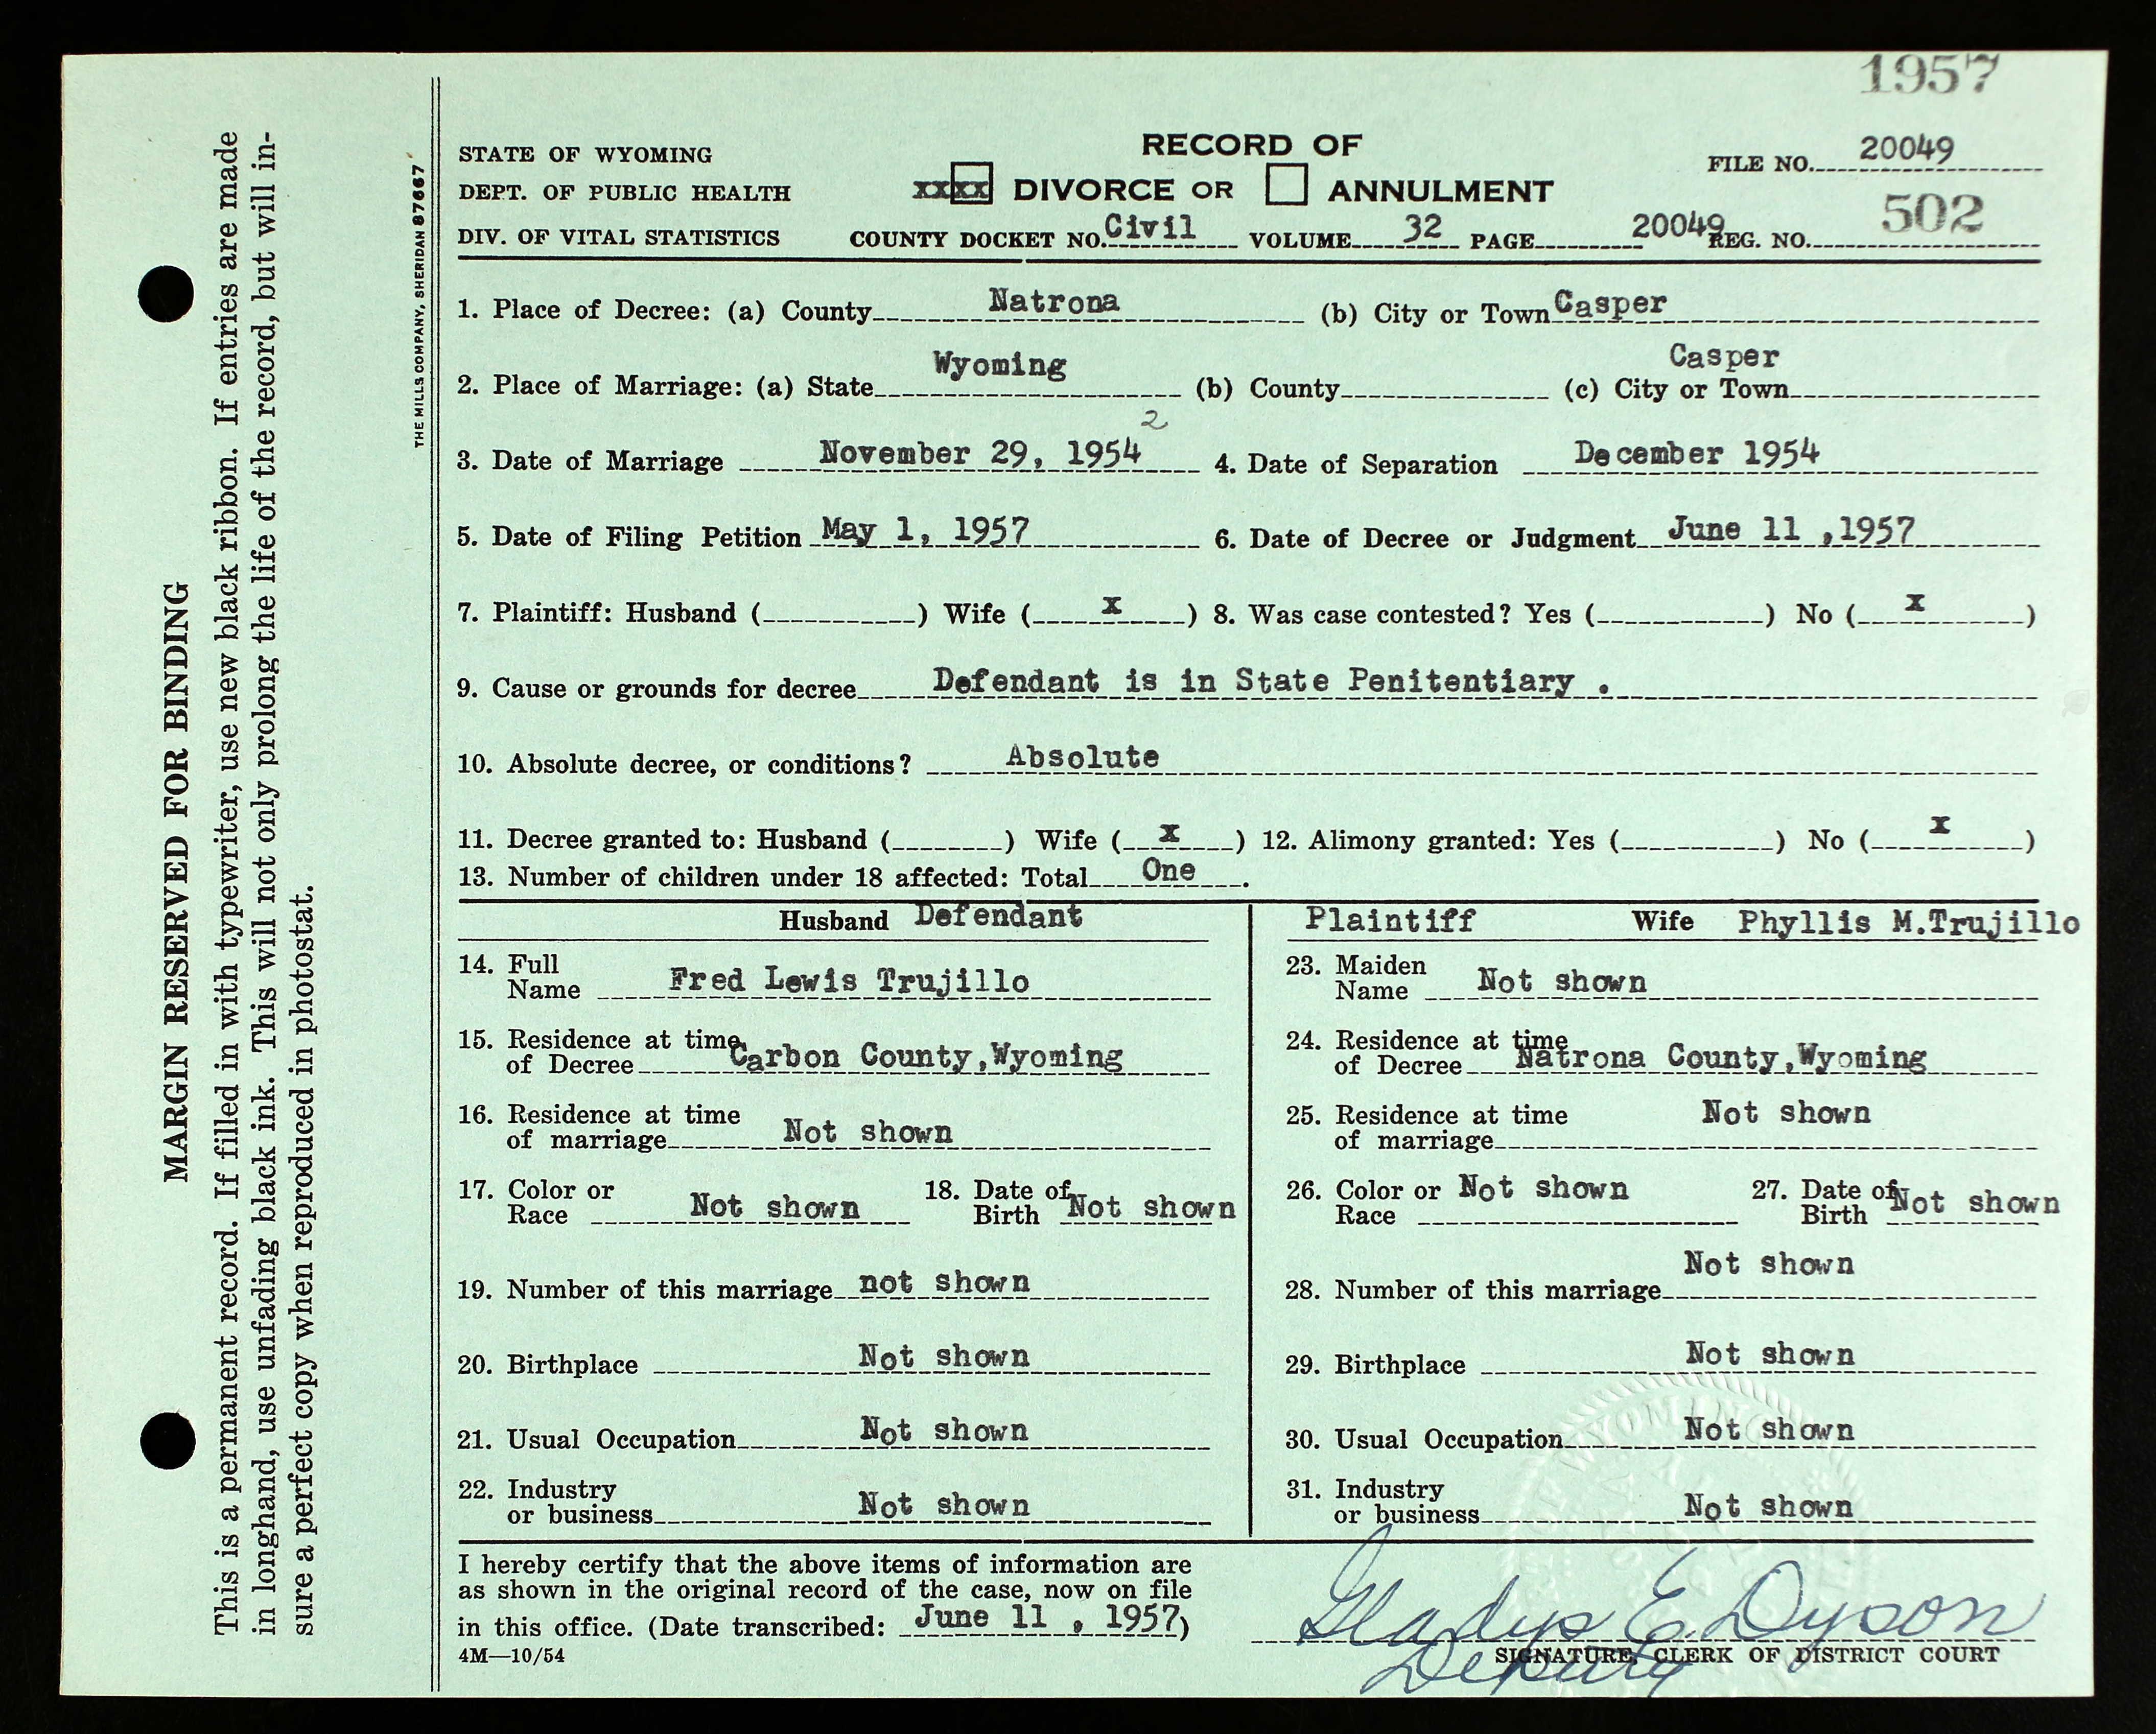 1957
STATE OF WYOMING
DEPT. OF PUBLIC HEALTH
DIV. OF VITAL STATISTICS
RECORD OF
xxxx DIVORCE OR ANNULMENT
FILE NO. 20049
COUNTY DOCKET NO. Civil VOLUME 32 PAGE 20049 REG. NO. 502
1. Place of Decree: (a) County Natrona (b) City or Town Casper
2. Place of Marriage: (a) State Wyoming (b) County (c) City or Town Casper
2
3. Date of Marriage November 29, 1954 4. Date of Separation December 1954
5. Date of Filing Petition May 1, 1957 6. Date of Decree or Judgment June 11 ,1957
7. Plaintiff: Husband ( ) Wife ( x ) 8. Was case contested? Yes ( ) No ( x )
9. Cause or grounds for decree Defendant is in State Penitentiary .
10. Absolute decree, or conditions? Absolute
11. Decree granted to: Husband ( ) Wife ( x ) 12. Alimony granted: Yes ( ) No ( x )
13. Number of children under 18 affected: Total One .
Husband Defendant
14. Full
Name Fred Lewis Trujillo
15. Residence at time
of Decree Carbon County,Wyoming
16. Residence at time
of marriage Not shown
17. Color or
Race Not shown
18. Date of
Birth Not shown
19. Number of this marriage not shown
20. Birthplace Not shown
21. Usual Occupation Not shown
22. Industry
or business Not shown
Plaintiff Wife Phyllis M.Trujillo
23. Maiden
Name Not shown
24. Residence at time
of Decree Natrona County,Wyoming
25. Residence at time
of marriage Not shown
26. Color or
Race Not shown
27. Date of
Birth Not shown
28. Number of this marriage Not shown
29. Birthplace Not shown
30. Usual Occupation Not shown
31. Industry
or business Not shown
I hereby certify that the above items of information are
as shown in the original record of the case, now on file
in this office. (Date transcribed: June 11 , 1957)
4M—10/54
Gladys E. Dyson
SIGNATURE, CLERK OF DISTRICT COURT
Deputy
THE MILLS COMPANY, SHERIDAN 87667
MARGIN RESERVED FOR BINDING
This is a permanent record. If filled in with typewriter, use new black ribbon. If entries are made
in longhand, use unfading black ink. This will not only prolong the life of the record, but will in-
sure a perfect copy when reproduced in photostat.